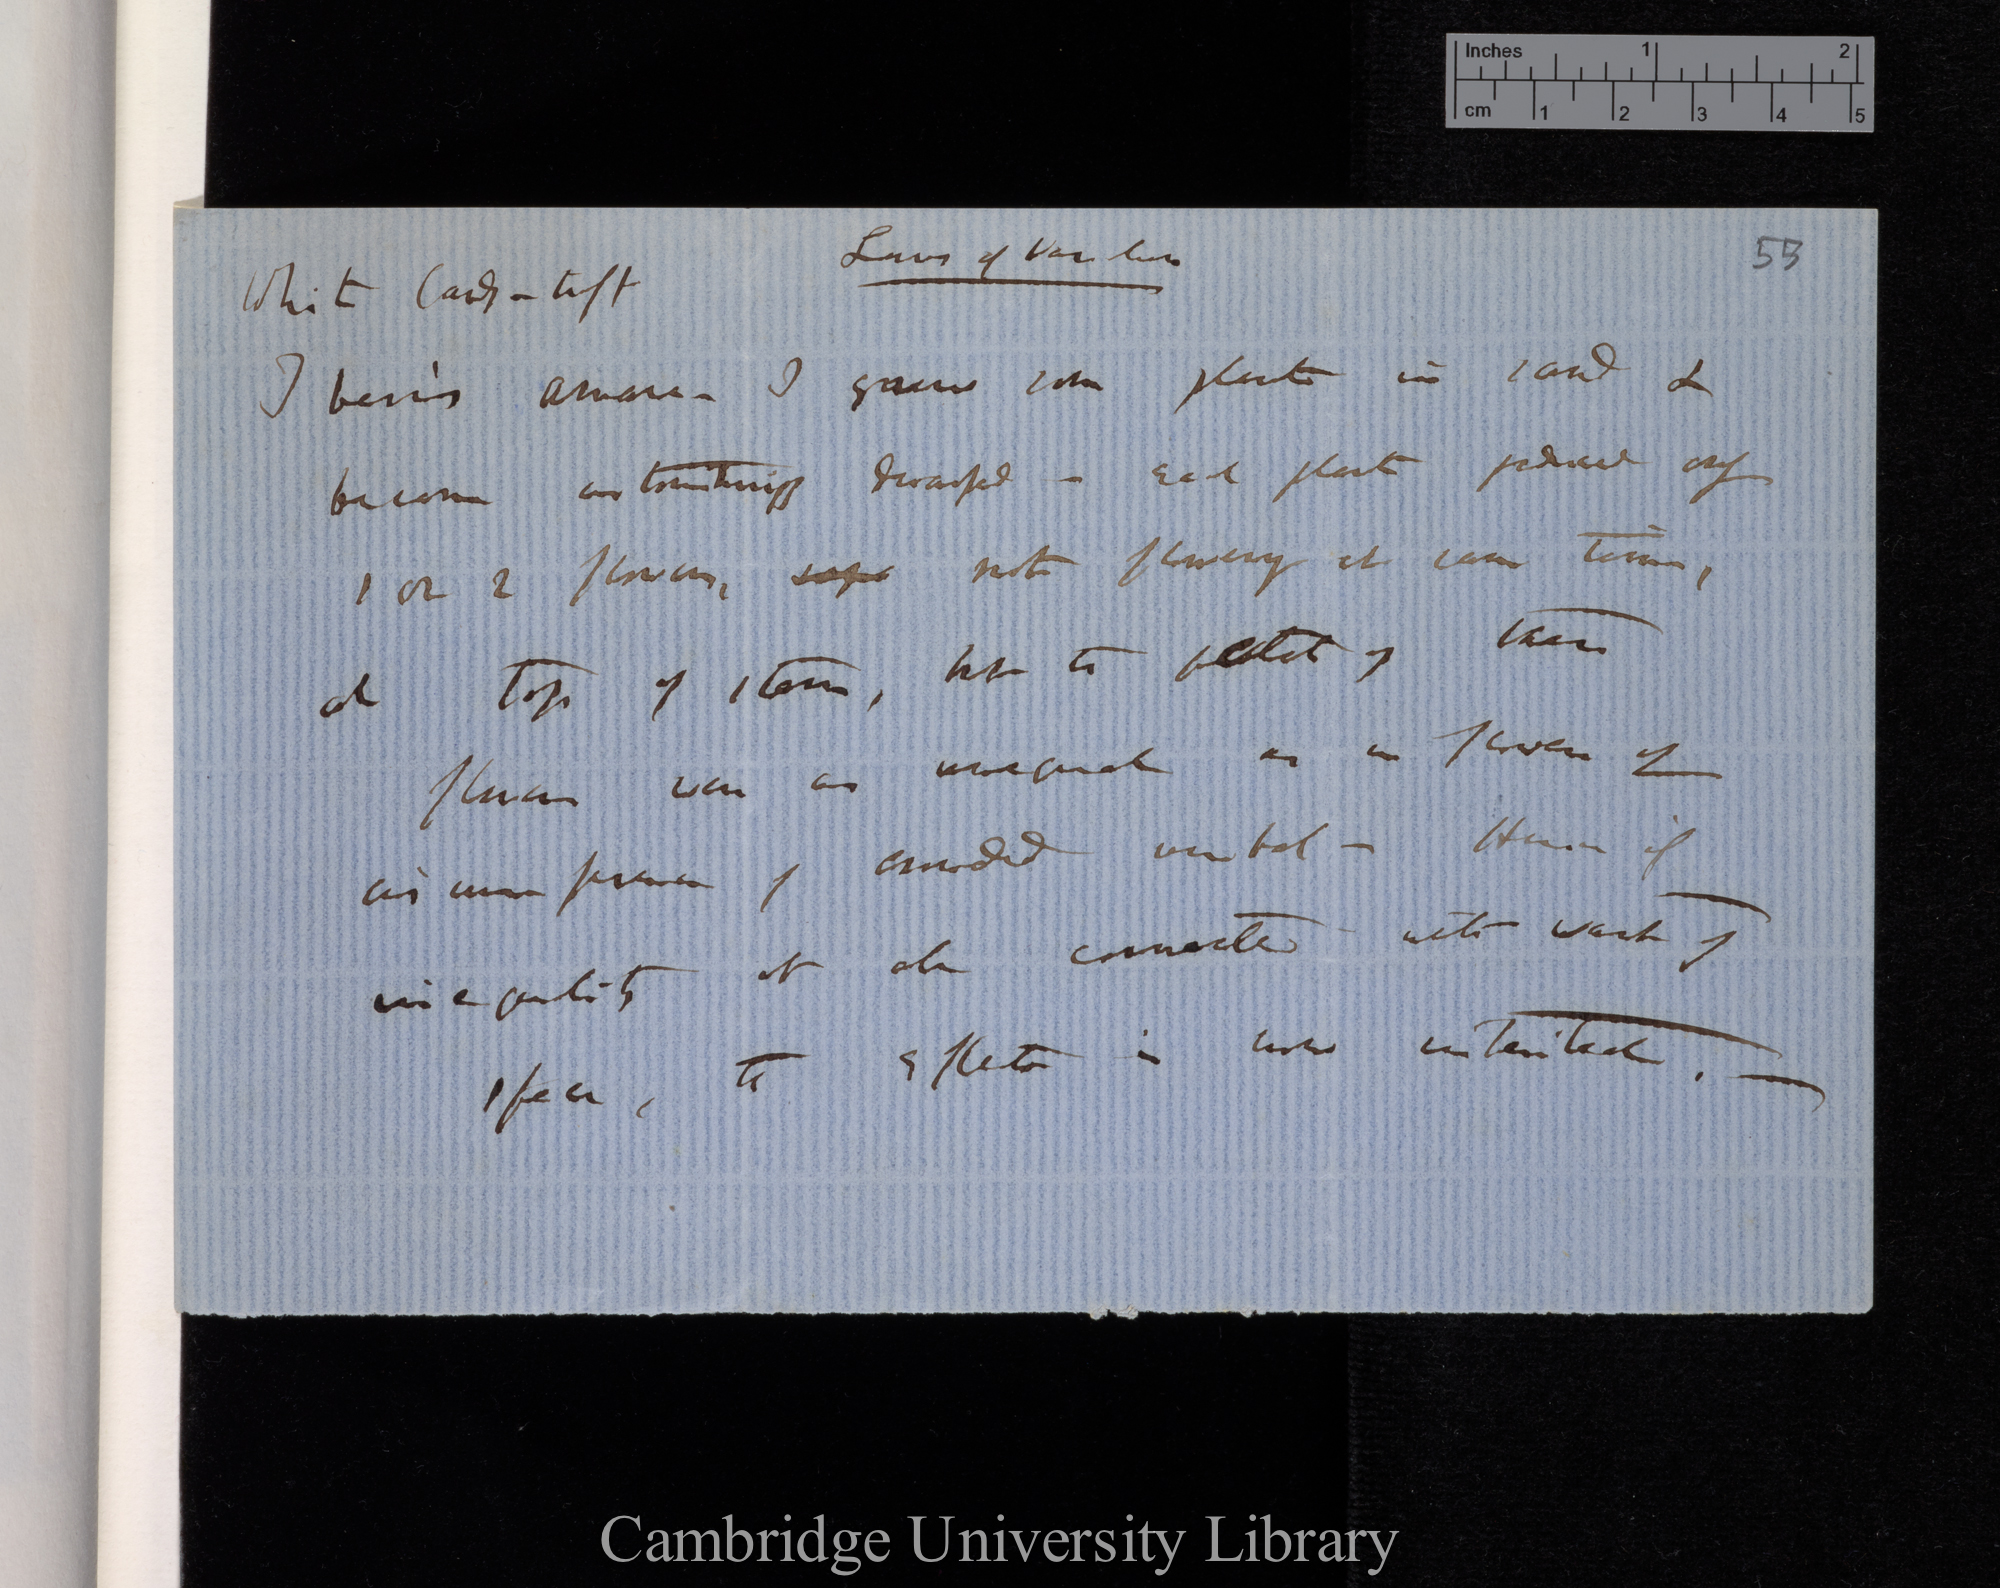 Inches 1 2
cm 1 2 3 4 5
Laws of Variation
55
White Candy-tuft
Iberis amara – I grew some plants in sand &
became astonishingly dwarfed – each plant produced only
1 or 2 flowers, not flowering at same time,
at top of stem, but the petals of these
flowers were as unequal as in flowers of
circumference of crowded umbel – Hence if
inequality at all connected with want of
space, the effects is now inherited. —
Cambridge University Library